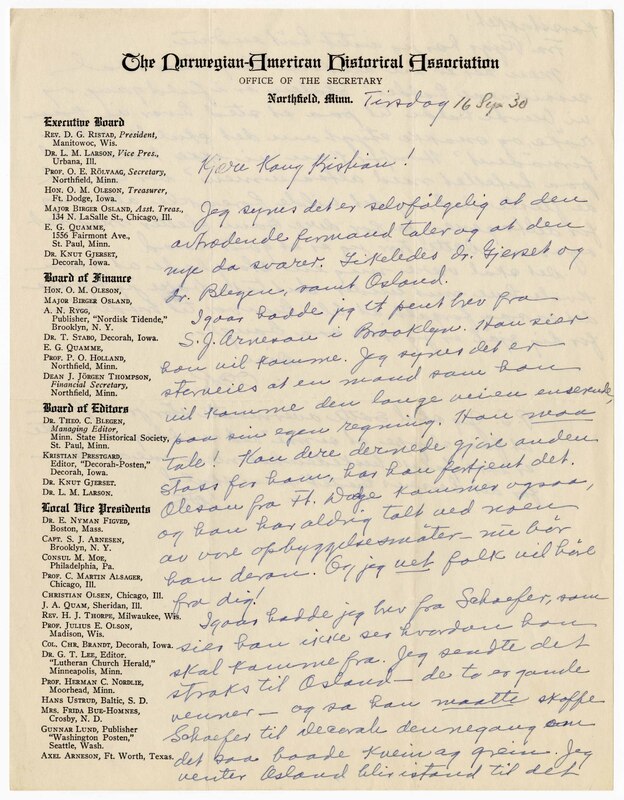 The Norwegian-American Historical Association
OFFICE OF THE SECRETARY
Northfield, Minn.
Tirsdag 16 Sep 30
Executive Board
REV. D. G. RISTAD, President,
Manitowoc, Wis.
DR. L. M. LARSON, Vice Pres.,
Urbana, Ill.
PROF. O. E. RÖLVAAG, Secretary,
Northfield, Minn.
HON. O. M. OLESON, Treasurer,
Ft. Dodge, Iowa.
MAJOR BIRGER OSLAND, Asst. Treas.,
134 N. LaSalle St., Chicago, Ill.
E. G. QUAMME,
1556 Fairmont Ave.,
St. Paul, Minn.
DR. KNUT GJERSET,
Decorah, Iowa.
Board of Finance
HON. O. M. OLESON,
MAJOR BIRGER OSLAND,
A. N. RYGG,
Publisher, "Nordisk Tidende,"
Brooklyn, N. Y.
DR. T. STABO, Decorah, Iowa.
E. G. QUAMME,
PROF. P. O. HOLLAND,
Northfield, Minn.
DEAN J. JÖRGEN THOMPSON,
Financial Secretary,
Northfield, Minn.
Board of Editors
DR. THEO. C. BLEGEN,
Managing Editor,
Minn. State Historical Society,
St. Paul, Minn.
KRISTIAN PRESTGARD,
Editor, "Decorah-Posten,"
Decorah, Iowa.
DR. KNUT GJERSET.
DR. L. M. LARSON.
Local Vice Presidents
DR. E. NYMAN FIGVED,
Boston, Mass.
CAPT. S. J. ARNESEN,
Brooklyn, N. Y.
CONSUL M. MOE,
Philadelphia, Pa.
PROF. C. MARTIN ALSAGER,
Chicago, Ill.
CHRISTIAN OLSEN, Chicago, Ill.
J. A. QUAM, Sheridan, Ill.
REV. H. J. THORPE, Milwaukee, Wis.
PROF. JULIUS E. OLSON,
Madison, Wis.
COL. CHR. BRANDT, Decorah, Iowa.
DR. G. T. LEE, Editor,
"Lutheran Church Herald,"
Minneapolis, Minn.
PROF. HERMAN C. NORDLIE,
Moorhead, Minn.
HANS USTRUD, Baltic, S. D.
MRS. FRIDA BUE-HOMNES,
Crosby, N. D.
GUNNAR LUND, Publisher
"Washington Posten,"
Seattle, Wash.
AXEL ARNESON, Ft. Worth, Texas.
Kjere Kong Kristian!
Jeg synes det er selvfölgelig at den
avtrædende formand taler og at den
nye da svarer. Likeledes dr. Gjerset og
dr. Blegen, samt Osland.
Igaar hadde jeg et pent brev fra
S. J. Arneson i Brooklyn. Han sier
han vil komme. Jeg synes det er
at en mand som han
vil komme den lange veien enserende,
paa sin egen regning. Han maa
tale! Kan dere dernede gjöre anden
Stass for ham, har han fortjent det.
Oleson fra Ft. Dodge kommer ogsaa,
og han har aldrig talt ved noen
av vore opbyggelsesmöter – nu bör
han deran. Og jeg vet folk vil höre
fra dig!
Igaar hadde jeg brev fra Schaefer, som
sier han ikke ser hvordan han
skal komme fra. Jeg sendte det
straks til Osland – de to er gamle
venner – og sa han maatte skaffe
Schaefer til Decorah dennegang om
det saa baade kvein og grein. Jeg
venter Osland blir istand til det